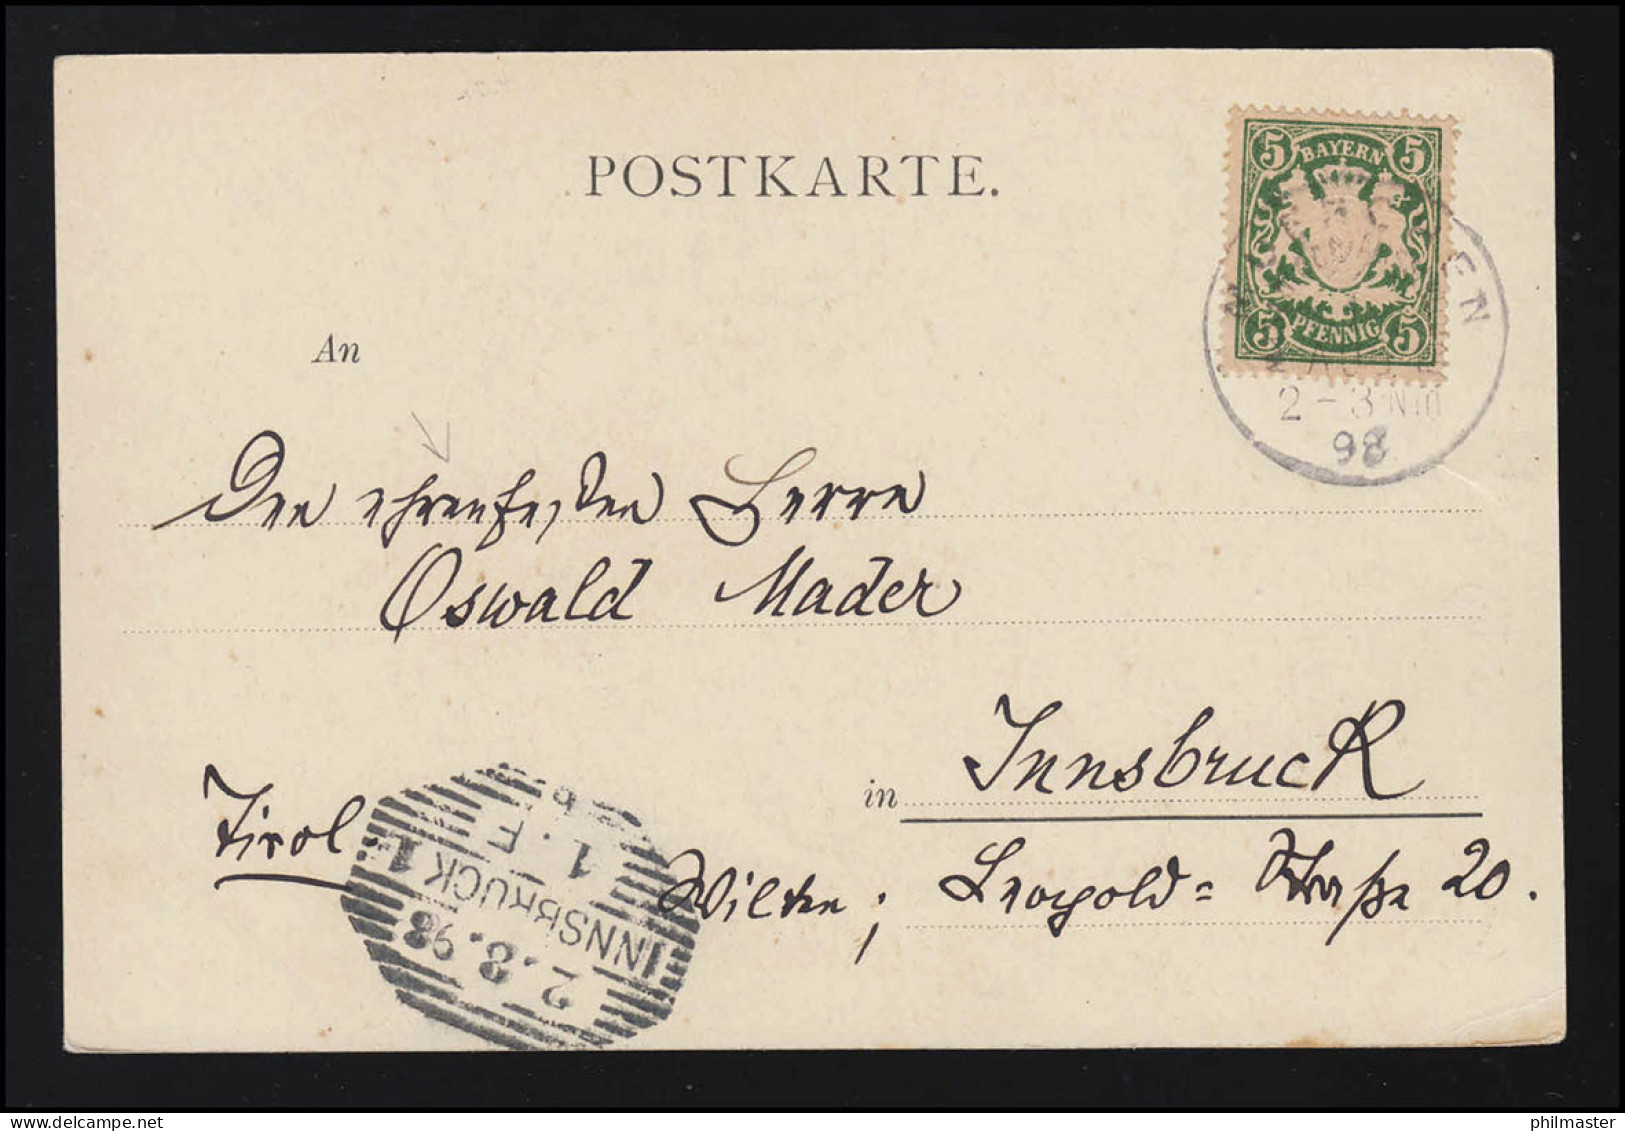 POSTKARTE.
5 BAYERN 5
5 PFENNIG 5
2-3 NM
98
An
Den ehrenfesten Herrn
Oswald Mader
in Innsbruck
Tirol.
Wilten; Leopold=Straße 20.
INNSBRUCK 1
2.8.98
1.F
philmaster